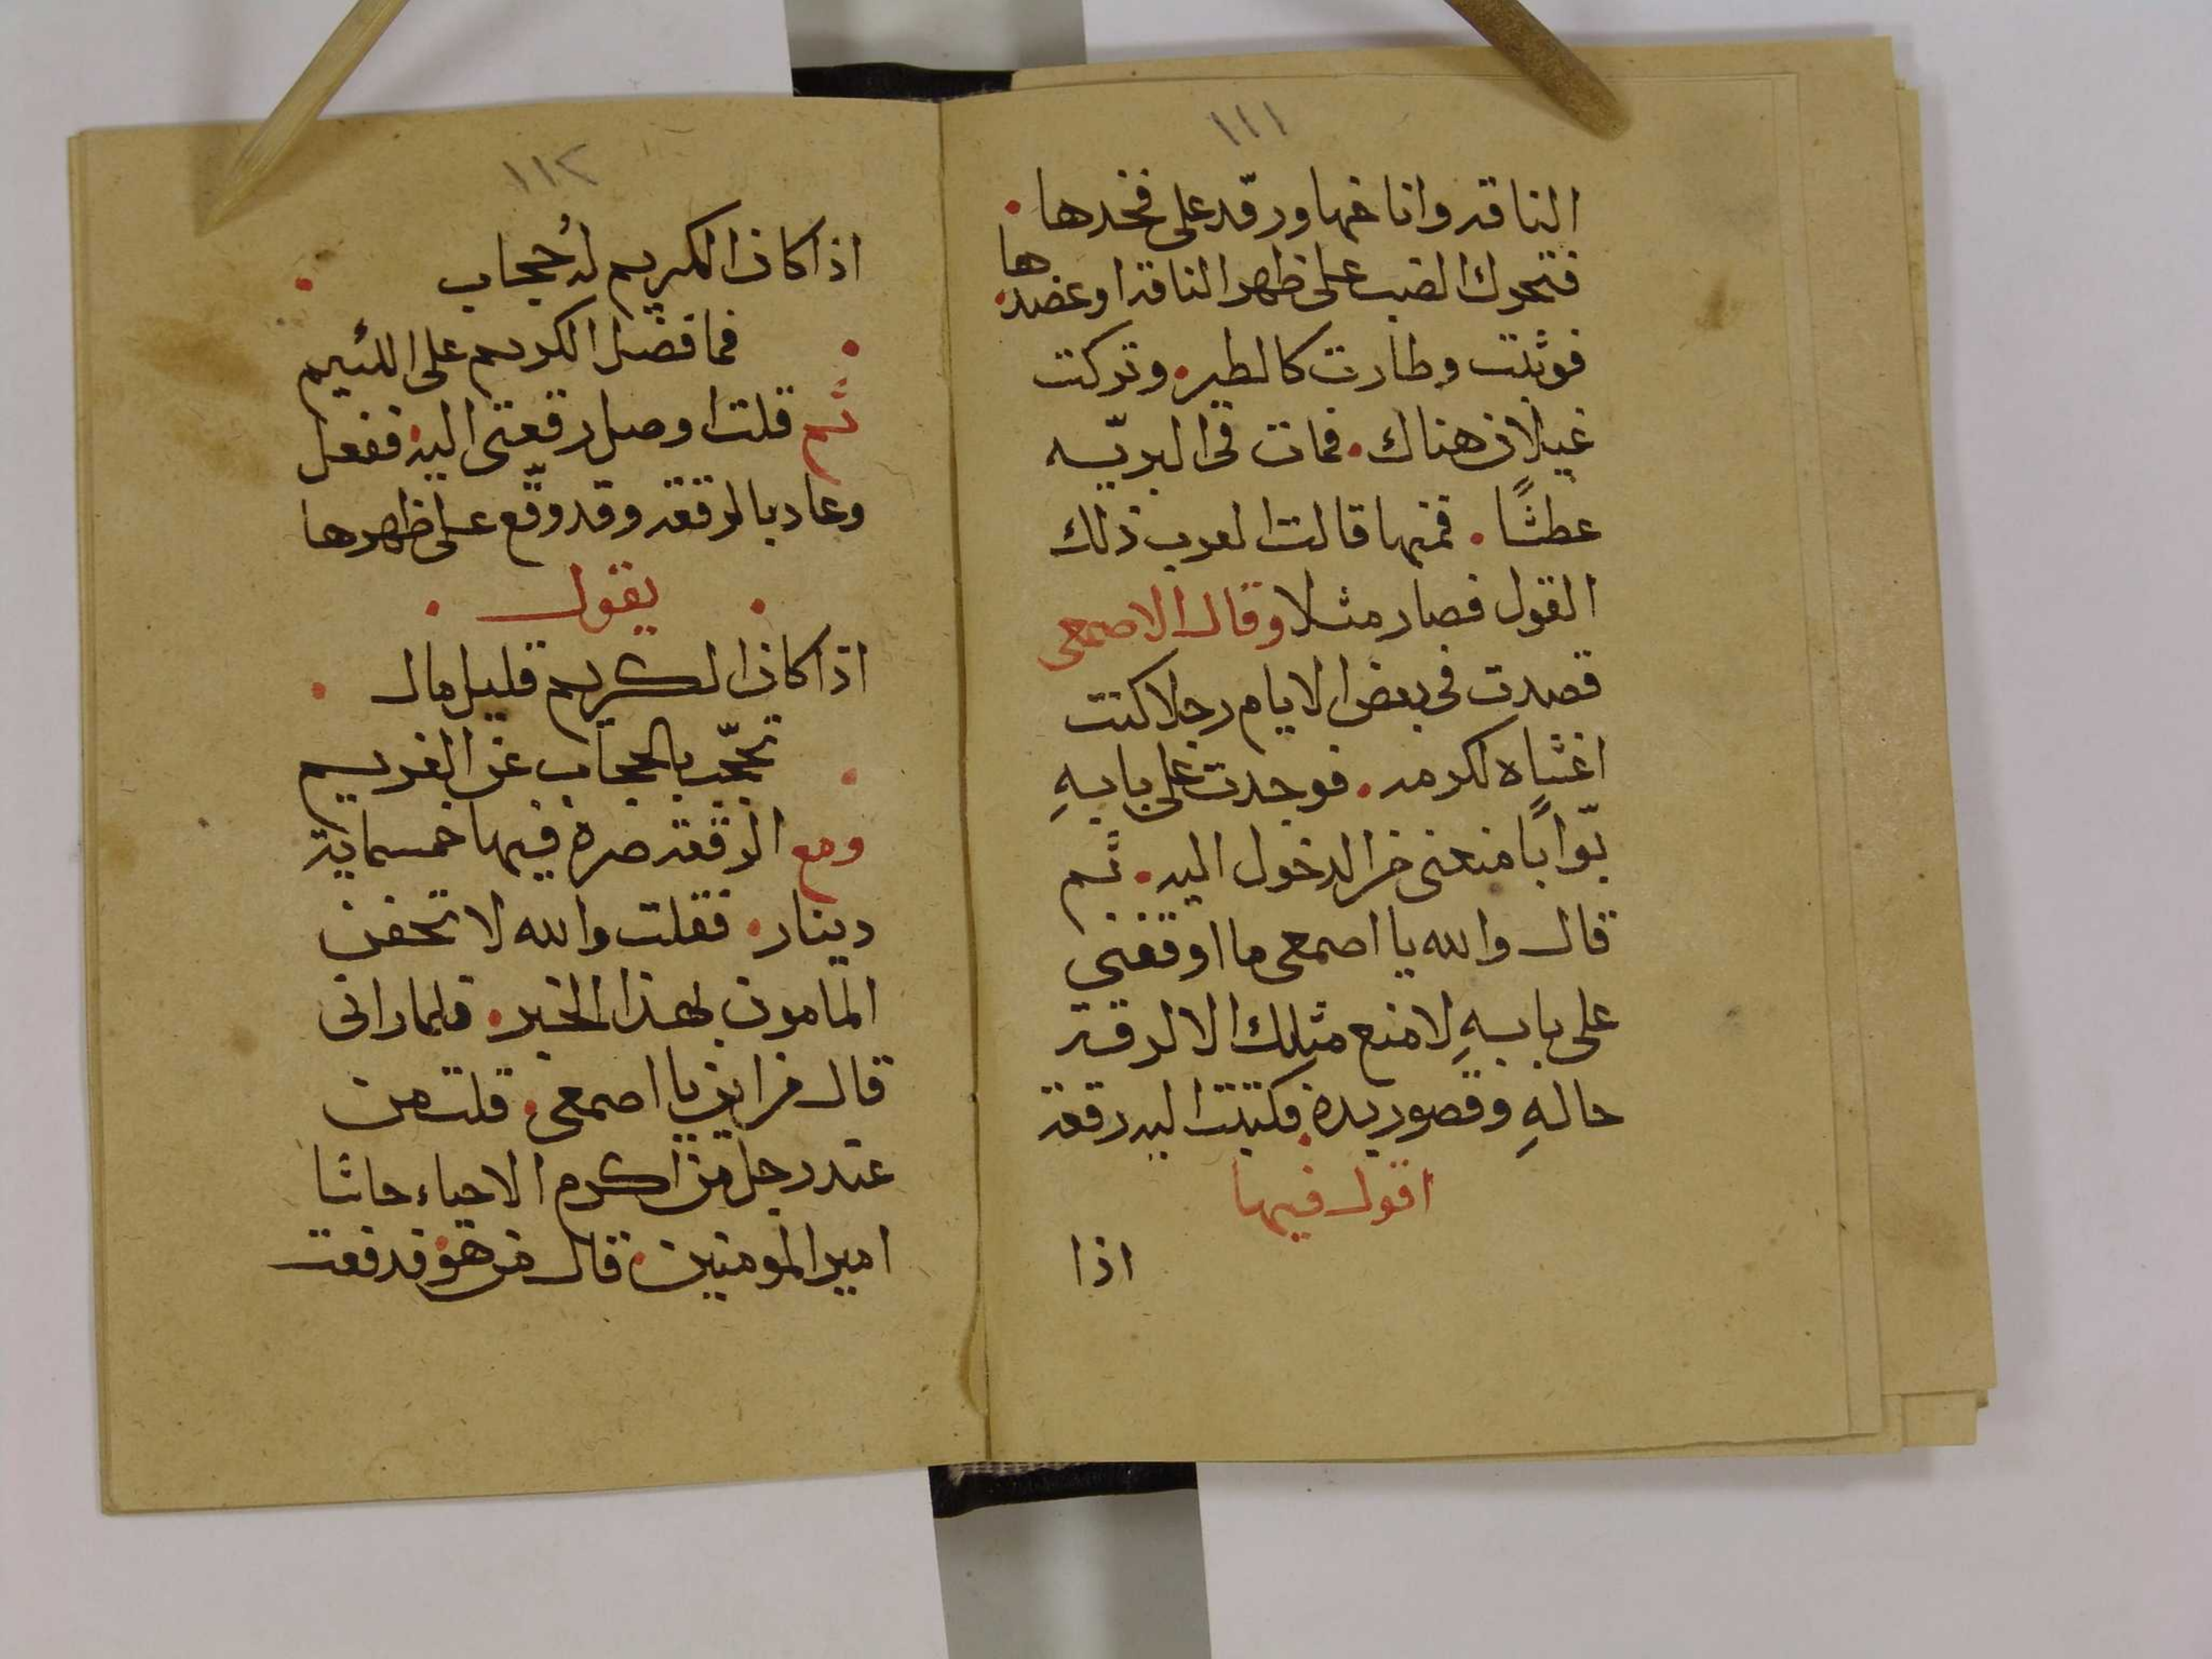 ١١١
الناقه واناخها ورقد على فخدها.
فتحرك الضب على ظهر الناقه او عضدها.
فوثبت وطارت كالطير. وتركت
غيلان هناك. فمات فى البريّه
عطشًا. فمنها قالت العرب ذلك
القول فصار مثلا وقال الاصمعى
قصدت فى بعض الايام رجلا كنت
اغشاه لكرمه. فوجدت على بابهِ
بوّابًا منعنى من الدخول اليه. ثم
قال والله يا اصمعى ما اوقفنى
على بابهِ لامنع مثلك الا لرقة
حالهِ وقصور يده. فكتبت اليه رقعة
اقول فيها
اذا
١١٢
اذا كان الكريم لهُ حجاب.
. فما فضل الكريم على اللئيم
ثم قلت اوصل رقعتى اليه. ففعل
وعاد بالرقعه وقد وقّع على ظهرها
. يقول .
اذا كان الكريم قليل مال.
. تحجّب بالحجاب عن الغريم
ومع الرقعه صرة فيها خمسماية
دينار. فقلت والله لاتحفن
المامون بهذا الخبر. فلما رانى
قال من اين يا اصمعى. قلت من
عند رجل من اكرم الاحياء حاشا
امير المومنين. قال من هو. فدفعت